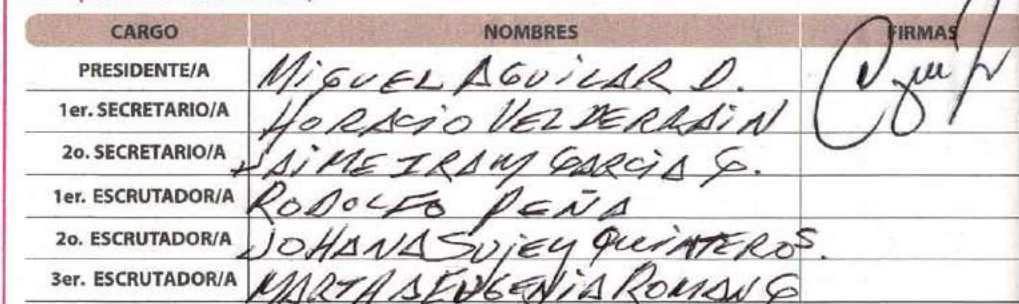 CARGO NOMBRES FIRMAS
PRESIDENTE/A MIGUEL AGUILAR D.
1er. SECRETARIO/A HORACIO VELDERRAIN
2o. SECRETARIO/A JAIME IRAM GARCIA G.
1er. ESCRUTADOR/A RODOLFO PEÑA
2o. ESCRUTADOR/A JOHANA SUJEY QUINTEROS.
3er. ESCRUTADOR/A MARTA EUGENIA ROMAN G